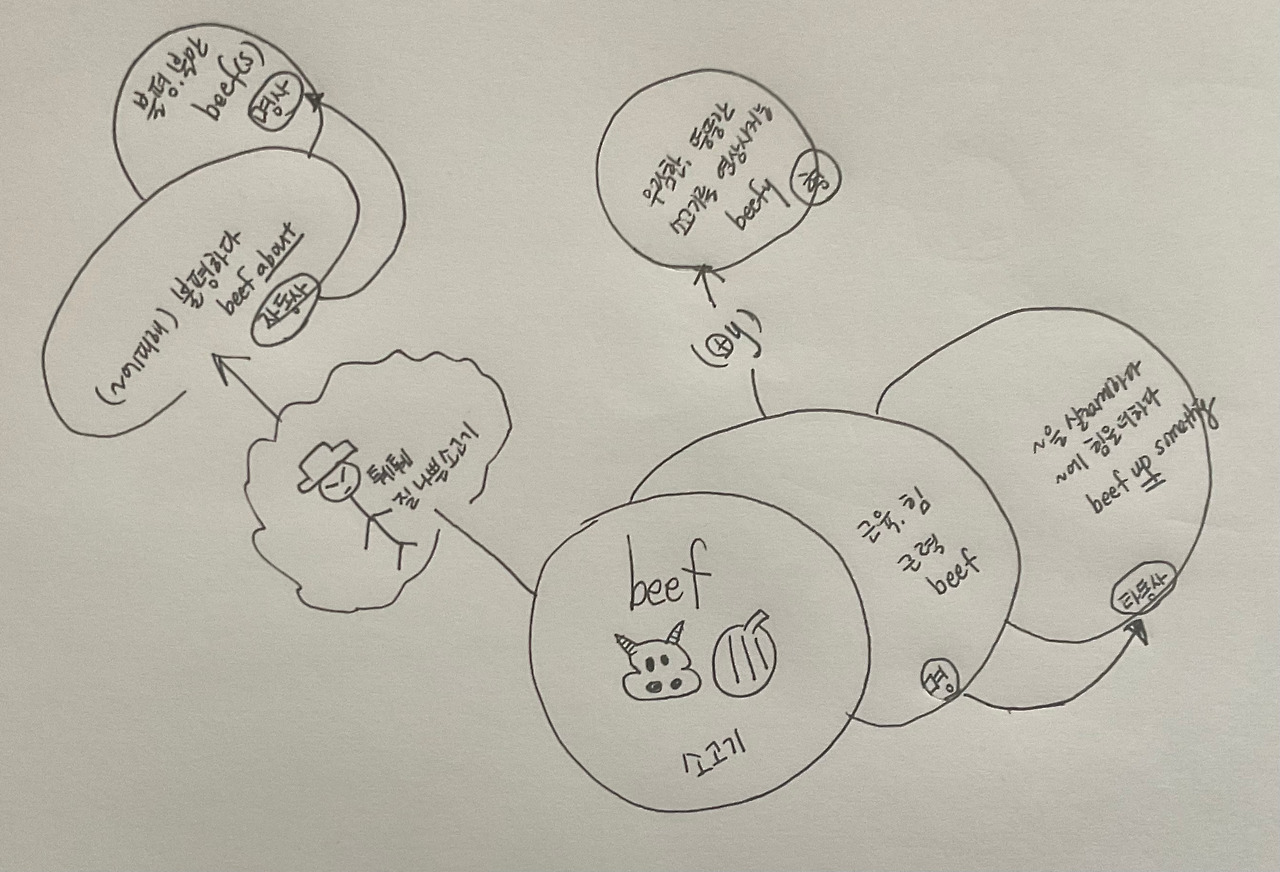 불평. 불만
beef(s)
명사
(~에 대해) 불평하다
beef about
자동사
퉤퉤
질 나쁜 소고기
우락부락한, 통통한
소고기를 연상시키는
beefy
형
(⊕y)
beef
소고기
근육. 힘
근력
beef
명
~을 강화하다
~에 힘을 더하다
beef up something
타동사